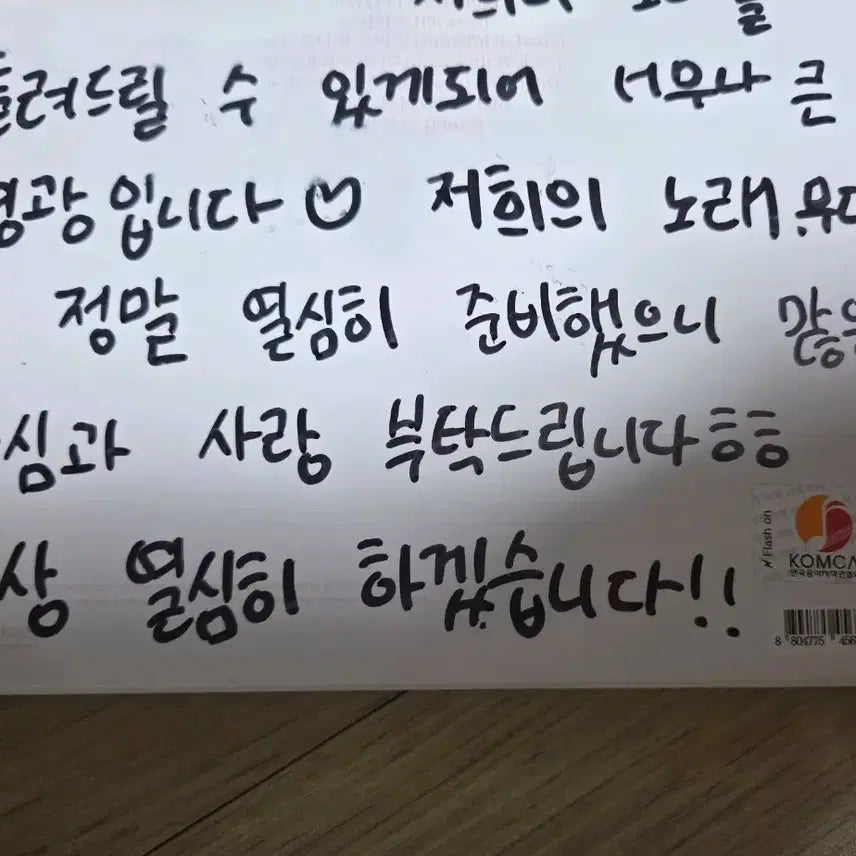 들려드릴 수 있게되어 너무나 큰
영광입니다♡ 저희의 노래, 무대
정말 열심히 준비했으니 많은
심과 사랑 부탁드립니다ㅎㅎ
상 열심히 하겠습니다!!
Flash on
KOMCA
한국음악저작권협회
8 804775 456